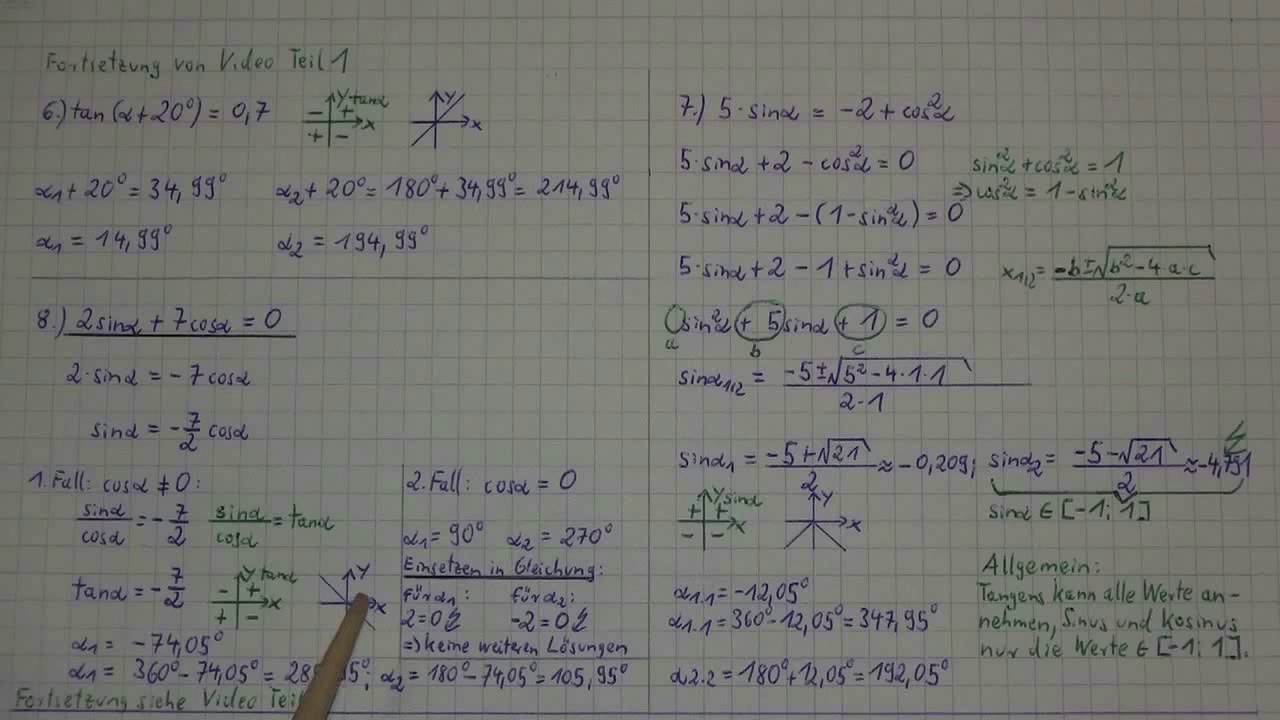 Fortsetzung von Video Teil 1
6.) tan(α+20°) = 0,7
y tanα
- +
+ - x
y
x
α1 + 20° = 34,99° α2 + 20° = 180° + 34,99° = 214,99°
α1 = 14,99° α2 = 194,99°
8.) 2sinα + 7cosα = 0
2·sinα = -7cosα
sinα = -7/2 cosα
1.Fall: cosα ≠ 0:
sinα/cosα = -7/2 sinα/cosα = tanα
tanα = -7/2
y tanα
- +
+ - x
y
x
α1 = -74,05°
2.Fall: cosα = 0
α1 = 90° α2 = 270°
Einsetzen in Gleichung:
für α1: für α2:
2=0 -2=0
⇒ keine weiteren Lösungen
α1 = 360° - 74,05° = 28 95°; α2 = 180° - 74,05° = 105,95°
Fortsetzung siehe Video Teil
7.) 5·sinα = -2 + cos²α
5·sinα + 2 - cos²α = 0
sin²α + cos²α = 1
⇒ cos²α = 1 - sin²α
5·sinα + 2 - (1 - sin²α) = 0
5·sinα + 2 - 1 + sin²α = 0
x1,2 = (-b ± √(b² - 4·a·c))/(2·a)
sin²α + 5 sinα + 1 = 0
a b c
sinα1,2 = (-5 ± √(5² - 4·1·1))/(2·1)
sinα1 = (-5 + √21)/2 ≈ -0,209; sinα2 = (-5 - √21)/2 ≈ -4,791
y sinα
+ +
- - x
y
x
sinα ∈ [-1; 1]
α1.1 = -12,05°
α1.1 = 360° - 12,05° = 347,95°
α2.2 = 180° + 12,05° = 192,05°
Allgemein:
Tangens kann alle Werte an-
nehmen, Sinus und Kosinus
nur die Werte ∈ [-1; 1].